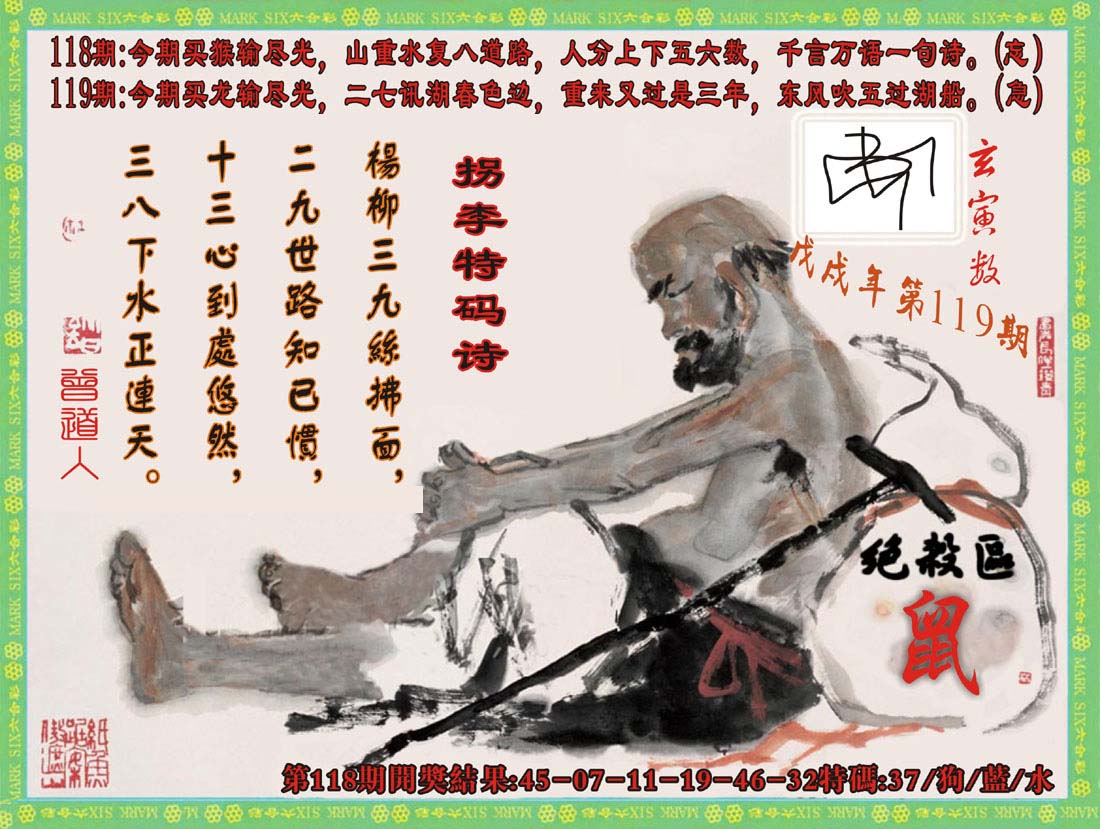 MARK SIX六合彩
118期:今期买猴输尽光，山重水复八道路，人分上下五六数，千言万语一句诗。(忘)
119期:今期买龙输尽光，二七讯湖春色边，重来又过是三年，东风吹五过湖船。(急)
拐李特码诗
楊柳三九絲拂面，
二九世路知已慣，
十三心到處悠然，
三八下水正連天。
曾道人
玄寅数
戊戌年第119期
绝殺區
鼠
第118期開獎結果:45-07-11-19-46-32特碼:37/狗/藍/水